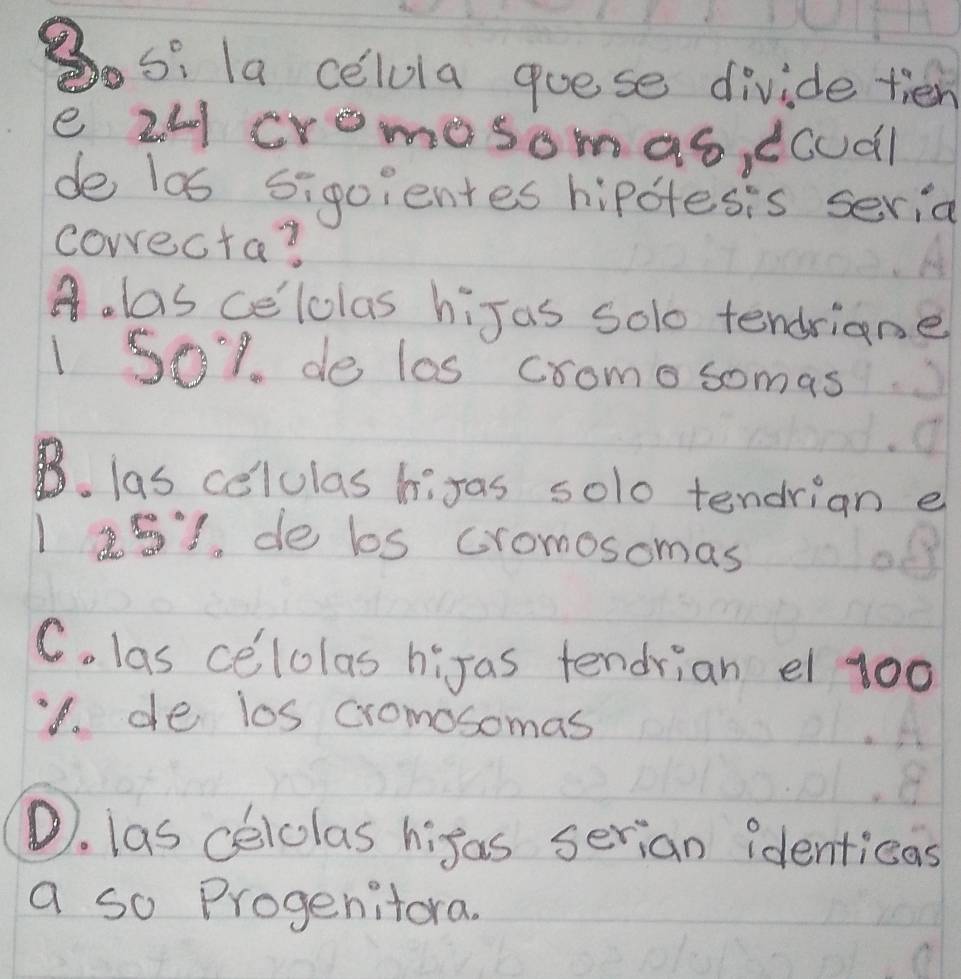 3. Si la célula que se divide tien
e 24 cromosomas, ¿cuál
de las siguientes hipótesis seria
correcta?
A. las células hijas solo tendrian e
l 50% de los cromosomas
B. las células hijas solo tendrian e
l 25% de los cromosomas
C. las células hijas tendrian el 100
% de los cromosomas
D. las células hijas serian identicas
a su Progenitora.